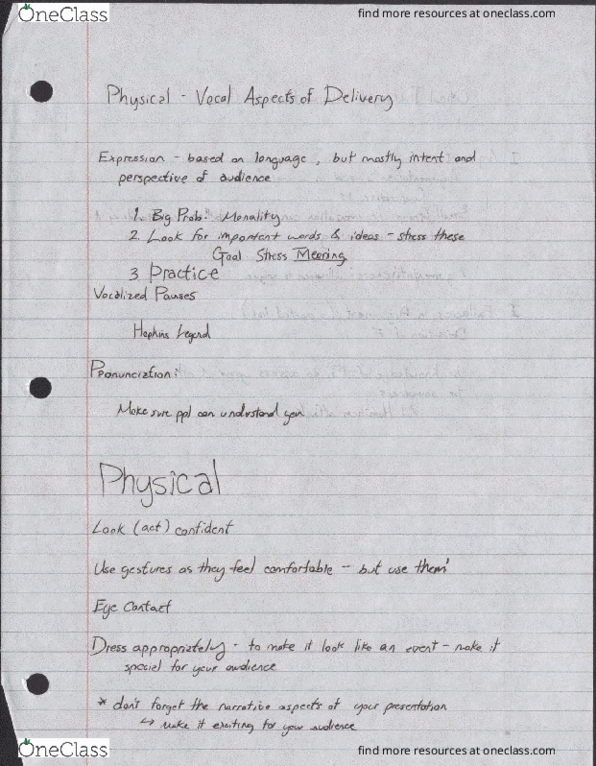 OneClass
find more resources at oneclass.com
Physical - Vocal Aspects of Delivery
Expression - based on language, but mostly intent and
perspective of audience
1. Big Prob: Monality
2. Look for important words & ideas - stress these
Goal Stress Meaning
3 Practice
Vocalized Pauses
Hopkins Legend
Pronunciation:
Make sure ppl can understand you
Physical
Look (act) confident
Use gestures as they feel comfortable - but use them!
Eye Contact
Dress appropriately - to make it look like an event - make it
special for your audience
* don't forget the narrative aspects of your presentation
↳ make it exciting for your audience
OneClass
find more resources at oneclass.com